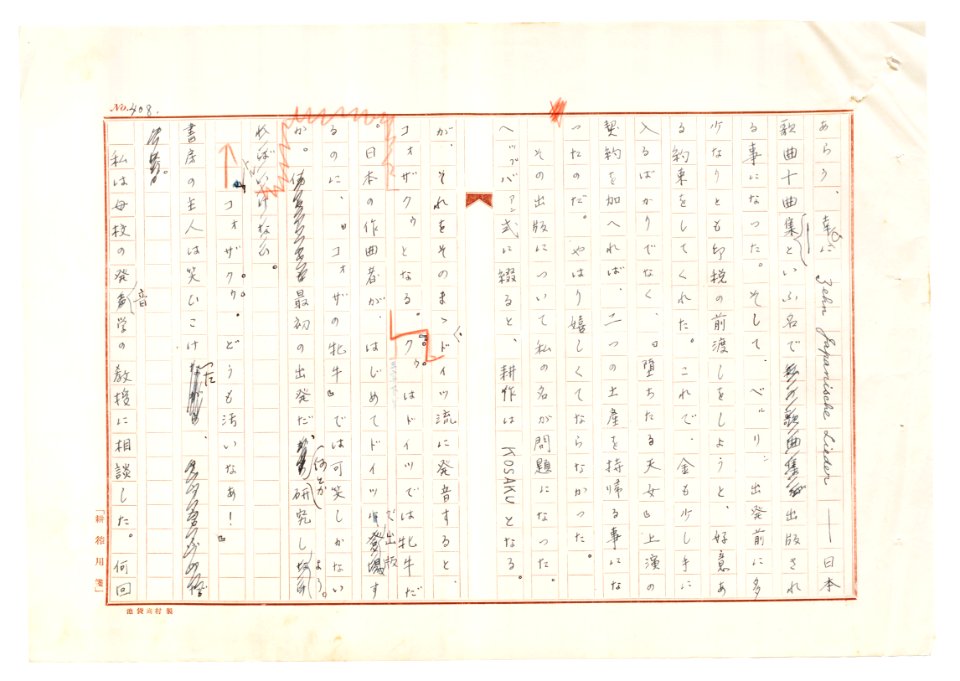 No. 408.
あらう、幸に Zehn Japanische Lieder ―― 日本
歌曲十曲集といふ名で出版され
る事になった。そして、ベルリン出発前に多
少なりとも印税の前渡しをしようと、好意あ
る約束をしてくれた。これで、金も少し手に
入るばかりでなく、『堕ちたる天女』上演の
契約を加へれば、二つの土産を持帰る事にな
ったのだ。やはり嬉しくてならなかった。
その出版について私の名が問題になった。
ヘップバアン式に綴ると、耕作は KOSAKU となる。
が、それをそのまゝドイツ流に発音すると、
コオザクウとなる。クウはドイツでは牝牛だ
。日本の作曲者が、はじめてドイツで出版す
るのに、『コオザの牝牛』では可笑しかない
か。最初の出発だ、何とか研究しよう。
コオザクウ。どうも汚いなあ!
書房の主人は笑いこけた、
私は母校の発音学の教授に相談した。何回
「耕作用箋」